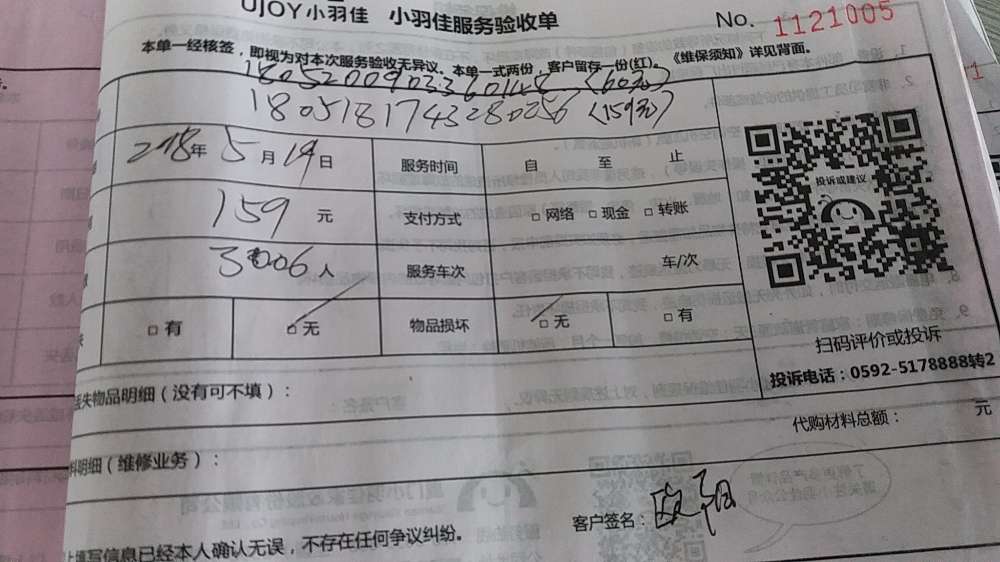 UJOY小羽佳 小羽佳服务验收单
No. 1121005
本单一经核签，即视为对本次服务验收无异议。本单一式两份，客户留存一份(红)。《维保须知》详见背面。
(60元)
1805181743280256 (159元)
2018年 5月19日 服务时间 自 至 止
159 元 支付方式 □网络 □现金 □转账
人 服务车次 车/次
□有 □无 物品损坏 □无 □有
投诉或建议
扫码评价或投诉
投诉电话：0592-5178888转2
丢失物品明细（没有可不填）：
代购材料总额： 元
料明细（维修业务）：
客户签名：
上填写信息已经本人确认无误，不存在任何争议纠纷。